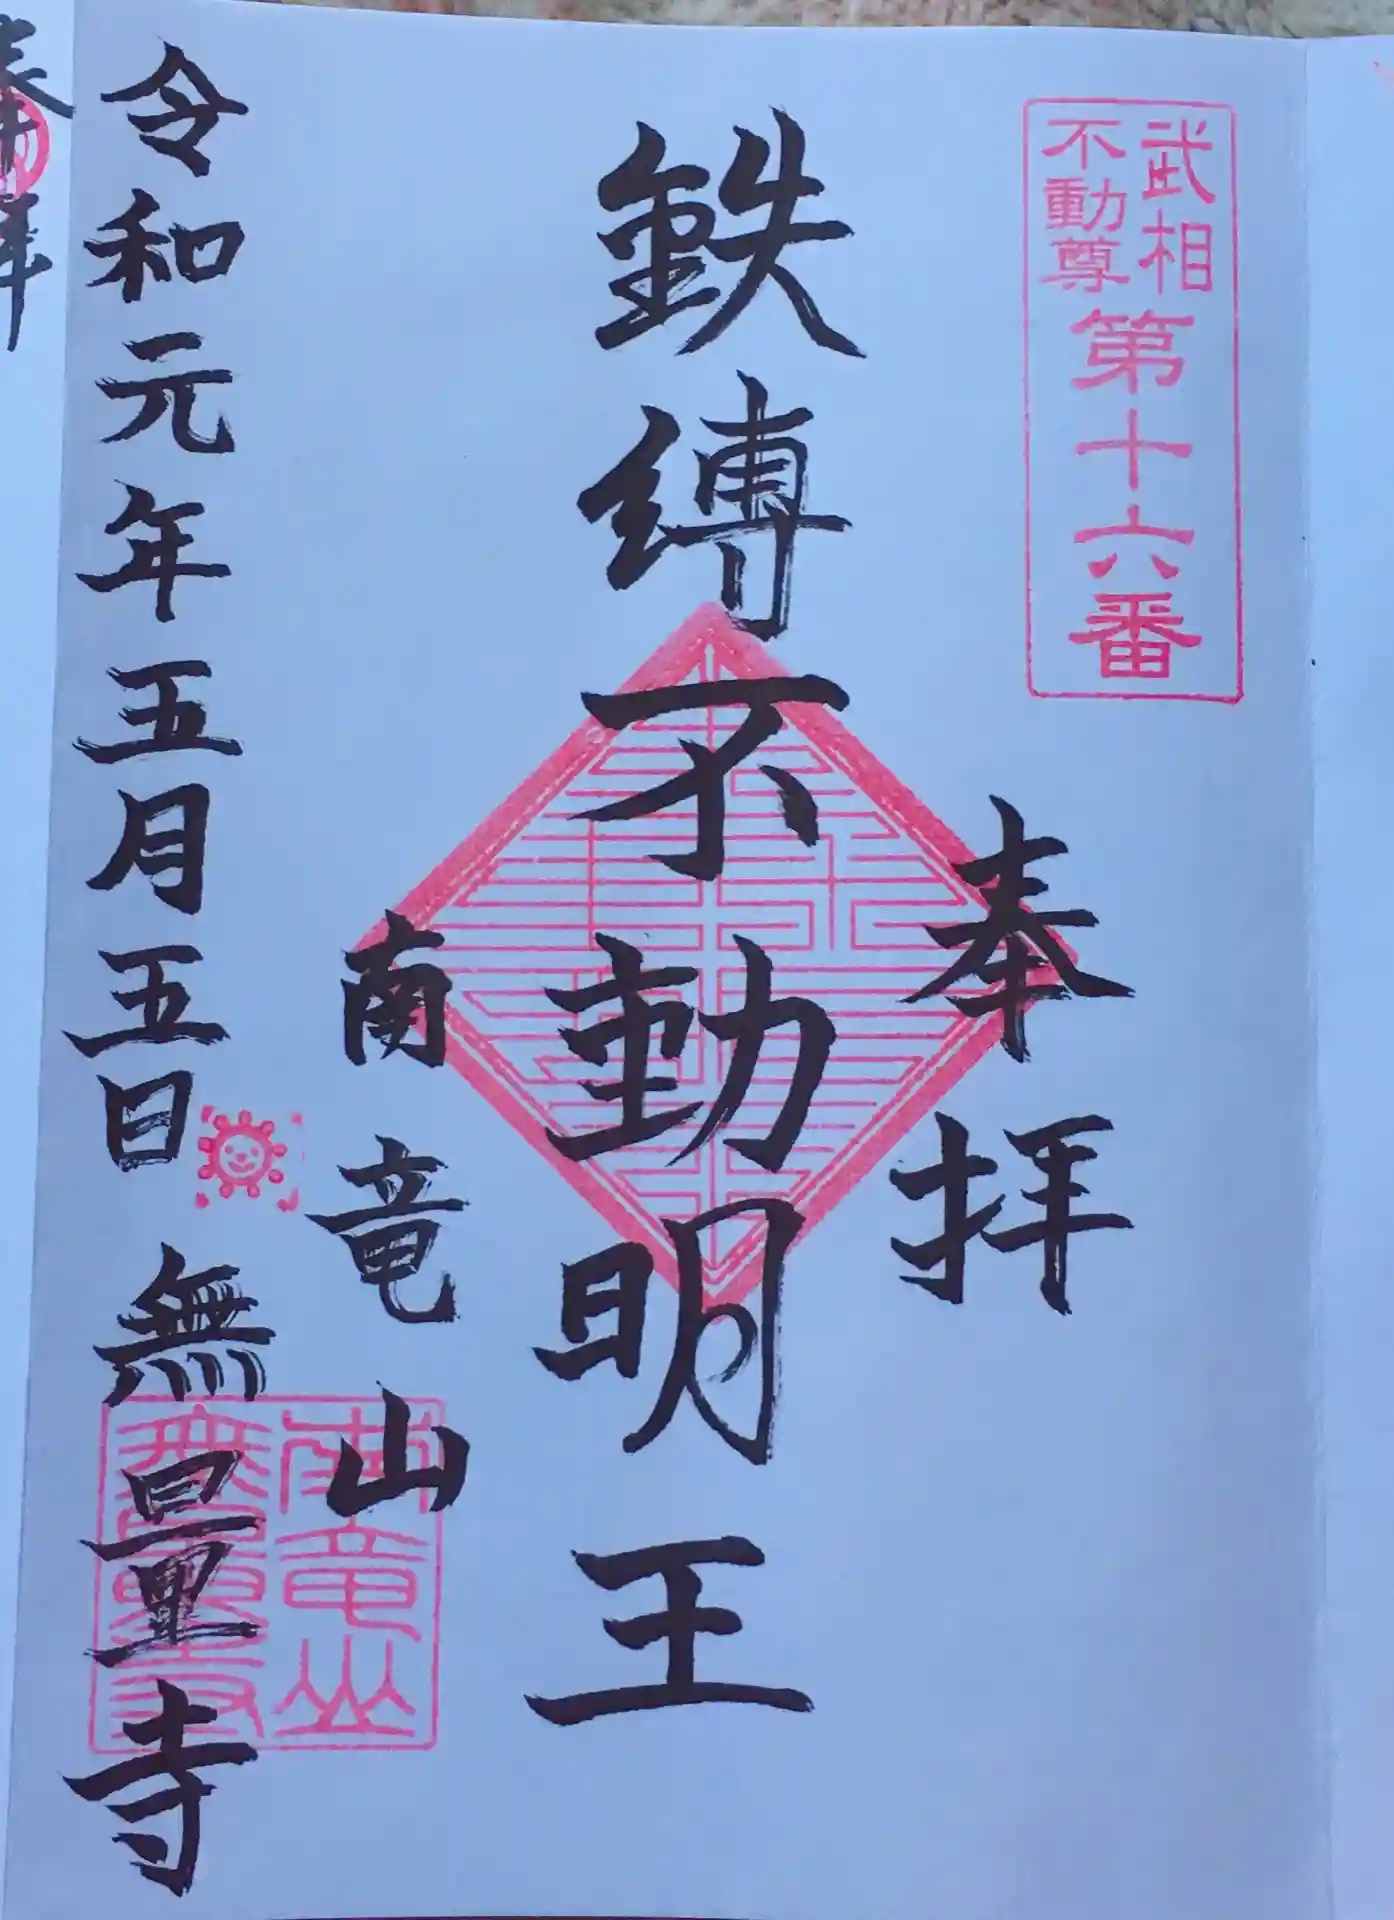 武相
不動尊
第十六番
奉拝
鉄縛不動明王
南竜山
令和元年五月五日 無量寺
南竜山
無量寺
奉拝